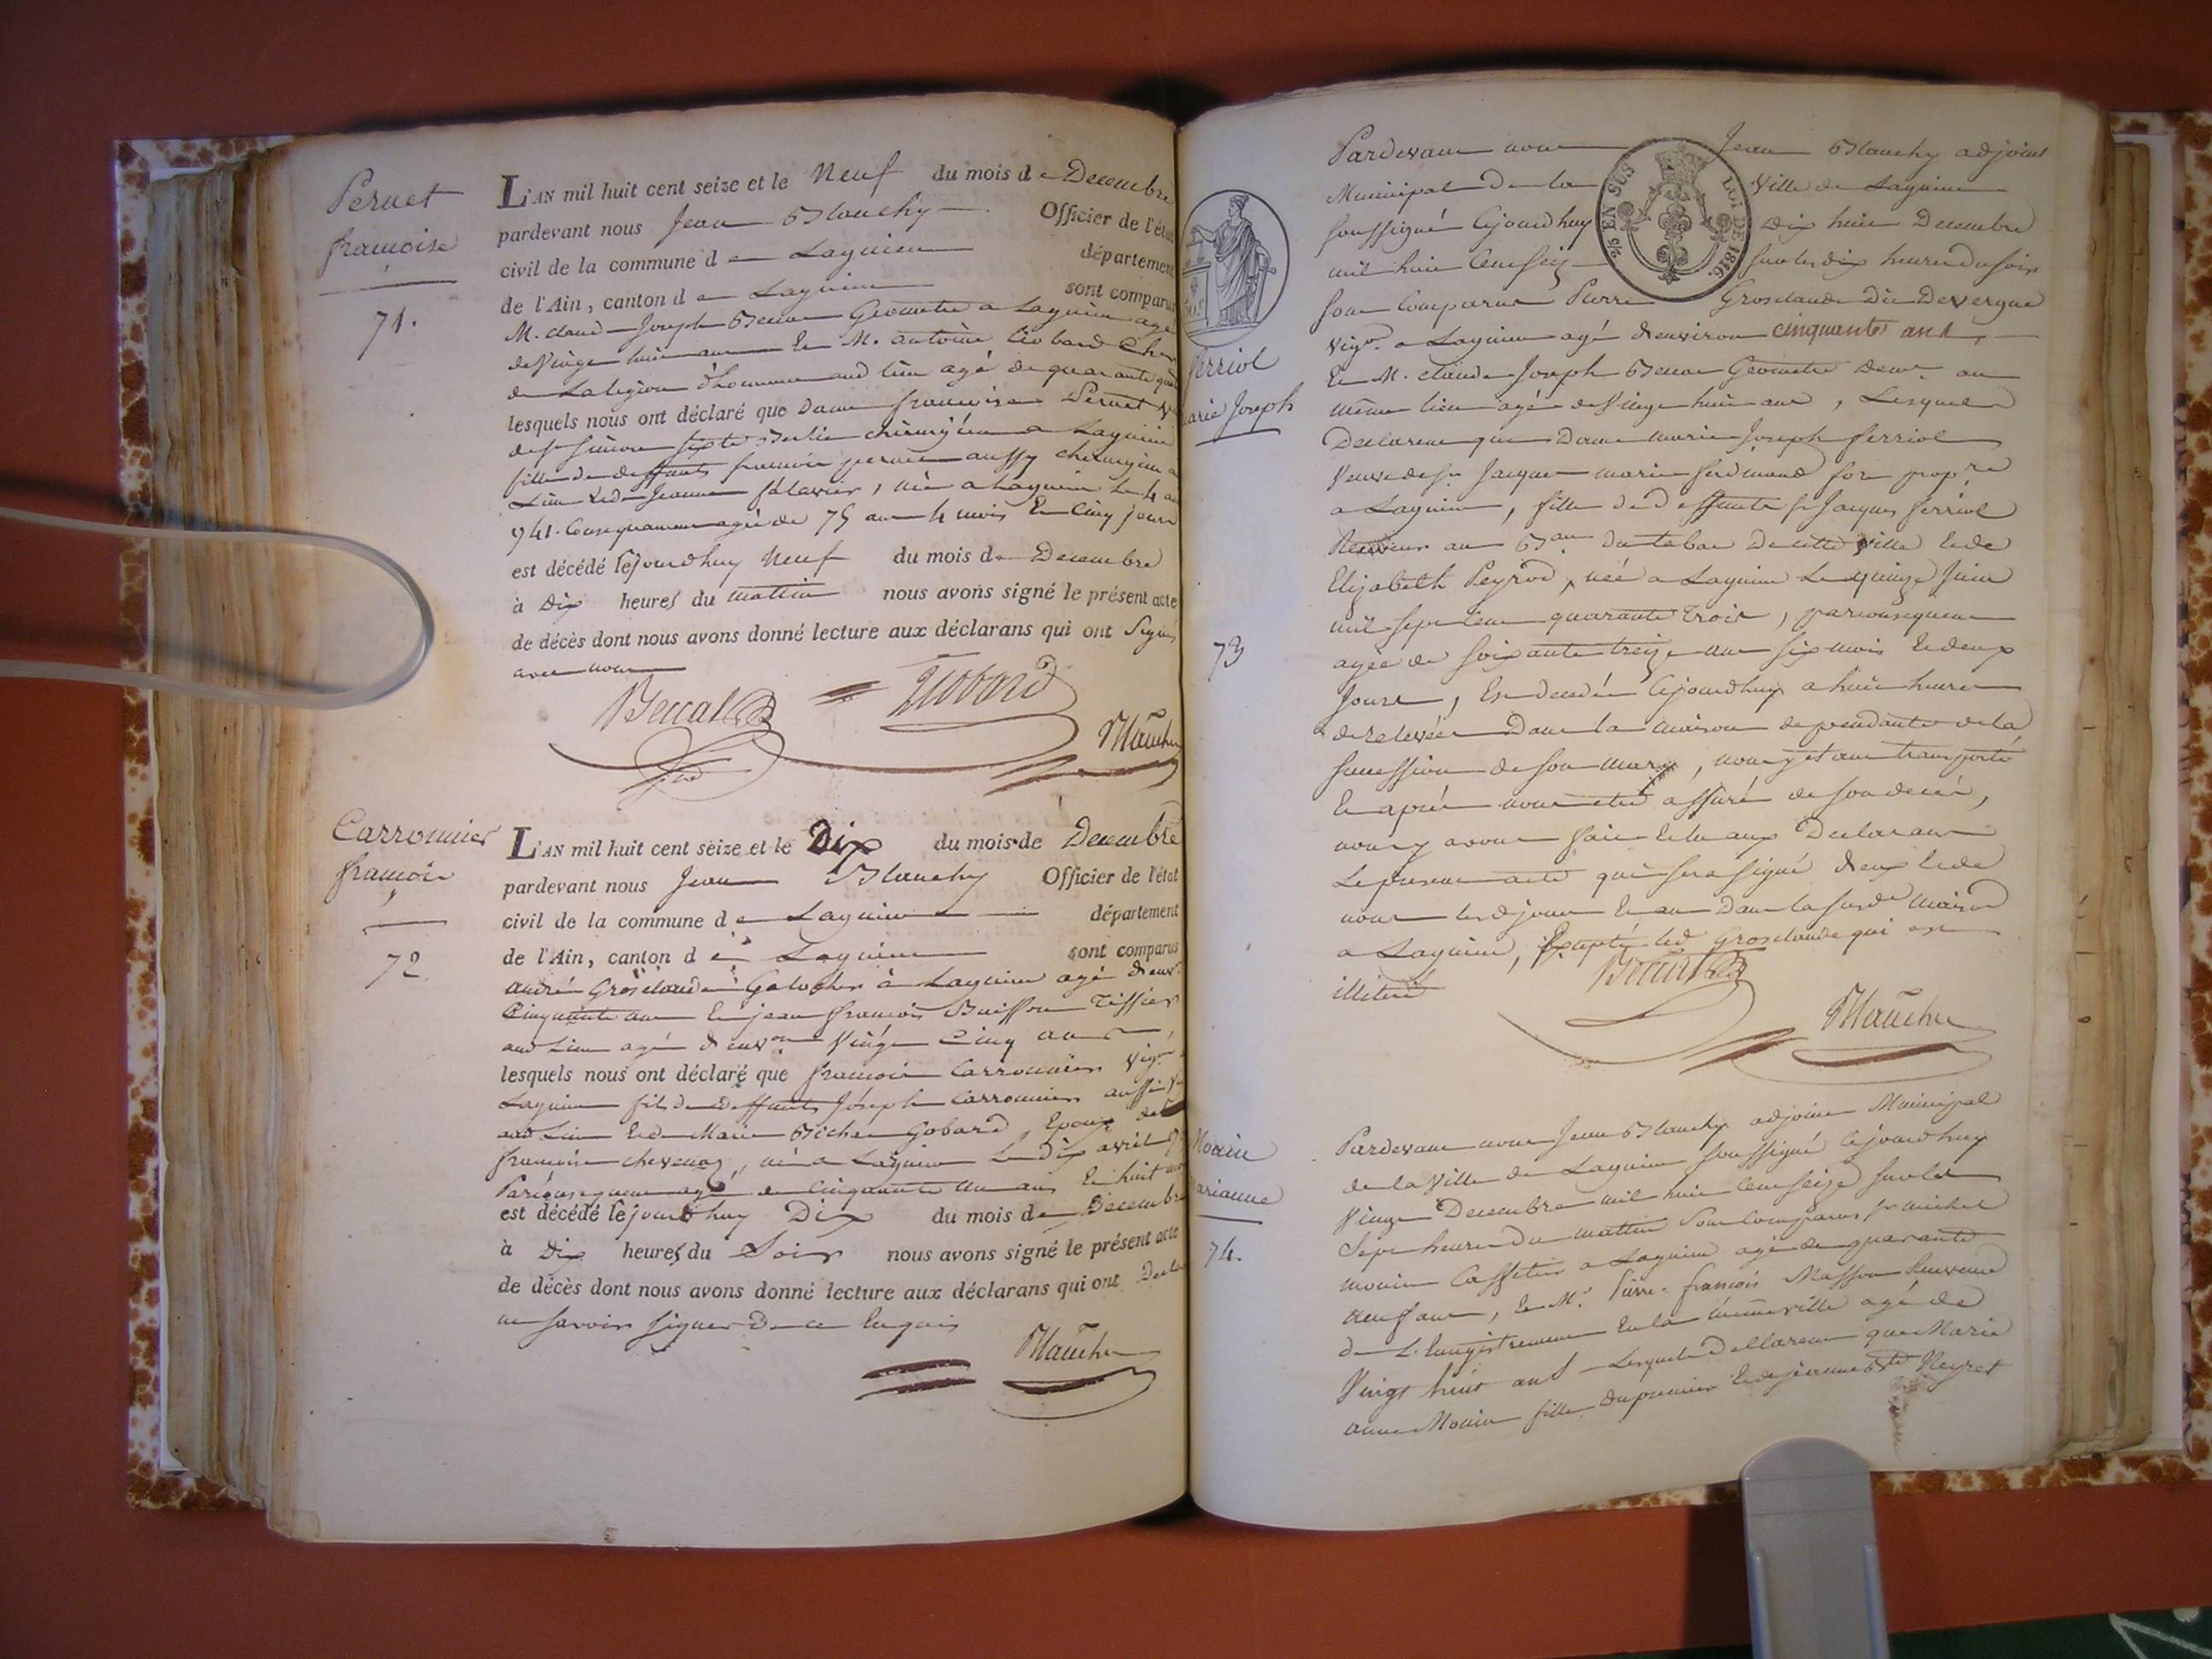 Pernet
françoise
71.
L'AN mil huit cent seize et le Neuf du mois de Decembre
pardevant nous Jean Blanchy Officier de l'état
civil de la commune de Lagnieu département
de l'Ain, canton de Lagnieu sont comparus
M. claude Joseph Geometre a Lagnieu agé
de Vingt huit ans Et M. antoine Liobard
de La legion d'honneur aud lieu agé de quarante
lesquels nous ont déclaré que Dame françoise Pernet
chirurgien a Lagnieu
fille de deffunts françois pernet aussy chirurgien
Lieu & de Jeanne , née a Lagnieu le 4
741. Consequamment agée de 75 ans 4 mois Et Cinq jours
est décédé cejourd'huy Neuf du mois de Decembre
à Dix heures du mattin nous avons signé le présent acte
de décès dont nous avons donné lecture aux déclarans qui ont Signé
avec nous
Liobard
Blanchy
Carronnier
françois
72
L'AN mil huit cent seize et le Dix du mois de Decembre
pardevant nous Jean Blanchy Officier de l'état
civil de la commune de Lagnieu département
de l'Ain, canton de Lagnieu sont comparus
andré Grosclaude Galocher à Lagnieu agé d'env.
Cinquante ans Et jean françois Buisson Tissier
aud Lieu agé d'environ Vingt Cinq ans,
lesquels nous ont déclaré que françois Carronnier Vig.
Lagnieu fils de deffunts Joseph Carronnier aussi
aud Lieu & de Marie Gobard, Epoux de
françoise chevenoz, né a Lagnieu le Dix avril
Parconsequent agé de Cinquante un ans Et huit
est décédé cejourd'huy Dix du mois de Decembre
à Dix heures du Soir nous avons signé le présent acte
de décès dont nous avons donné lecture aux déclarans qui ont
ne savoir signer de ce Enquis
Blanchy
Pardevant nous Jean Blanchy adjoint
Municipal de la Ville de Lagnieu
soussigné Cejourd'huy Dix huit Decembre
mil huit Cent seize sur les dix heures du soir
sont Comparus Pierre Grosclaude Dit Devergne
vig. a Lagnieu agé d'environ cinquante ans
Et M. claude Joseph Geometre Dem. au
même lieu agé de Vingt huit ans, Lesquels
EN SUS
LOI DE 1816.
Ferriol
Marie Joseph
73
Declarent que Dame marie Joseph ferriol
Veuve de Sr. Jacques marie ferdinand propre
a Lagnieu, fille de deffunts Sr Jacques ferriol
Receveur au Bau du tabac de cette ville & de
Elizabeth Peyrod, née a Lagnieu Le quinze Juin
mil sept Cent quarante trois, parconsequent
agée de soixante treize ans six mois & deux
Jours, Est decedée Cejourd'huy a huit heures
de relevée Dans la maison dependante de la
succession de son mary, nous y étant transporté
Et après nous être assuré de son decès,
nous y avons fait lecture aux Declarans
Le present acte qui sera signé d'eux & de
nous les d jour Et an Dans la susde maison
a Lagnieu, Excepté led Grosclaude qui est
illitéré
Blanchy
Monin
Marianne
74.
Pardevant nous Jean Blanchy adjoint Municipal
de la Ville de Lagnieu soussigné Cejourd'huy
Vingt Decembre mil huit Cent seize sur les
Sept heures du mattin Sont Comparus Sr michel
monin Caffetier a Lagnieu agé de quarante
neuf ans, Et M. Pierre françois Masson Receveur
de L'Enregistrement En la même ville agé de
Vingt huit ans Lesquels declarent que Marie
anne Monin fille du premier & de jeanne Neyret